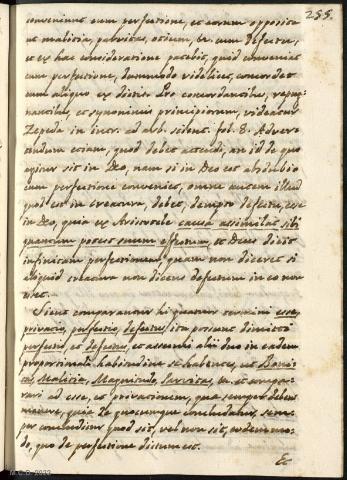 255.
conveniunt cum perfectione, et eorum opposita
ut malitia, parvitas, otium, &c. cum defectu,
et ex hac consideratione patebit, quid conveniat
cum perfectione, dummodo videlicet, concordet
cum aliquo ex dictis. Pro concordantibus, repug-
nantibus, et synonimis principiorum, videatur
Zepeda in intr. ad arb. scient. fol. 8. Adver-
tendum etiam, quod debet attendi, an id de quo
agitur sit in Deo, nam si in Deo est absdubio
cum perfectione conveniet, omne autem illud
quod est in creatura, debet, dempto defectu, esse
in Deo, quia ex Aristotele causa assimilat sibi
quantum potest suum effectum, et Deus dicit
infinitam perfectionem, quam non diceret si
aliquid creatura non dicens defectum in eo non
esset.
Sicut comparantur hi quatuor termini esse,
privatio, perfectio, defectus, ita possunt dimitti
perfectio, et defectus, et assumi alii duo in eadem
proportionata habitudine se habentes, ut Bonitas,
Malitia, Magnitudo, Parvitas, &c. et compa-
rari ad esse, et privationem, quia semper debet
manere, quia de quocumque concludatur, sem-
per concluditur quod sit, vel non sit, eodem mo-
do, quo de perfectione dictum est.
Et